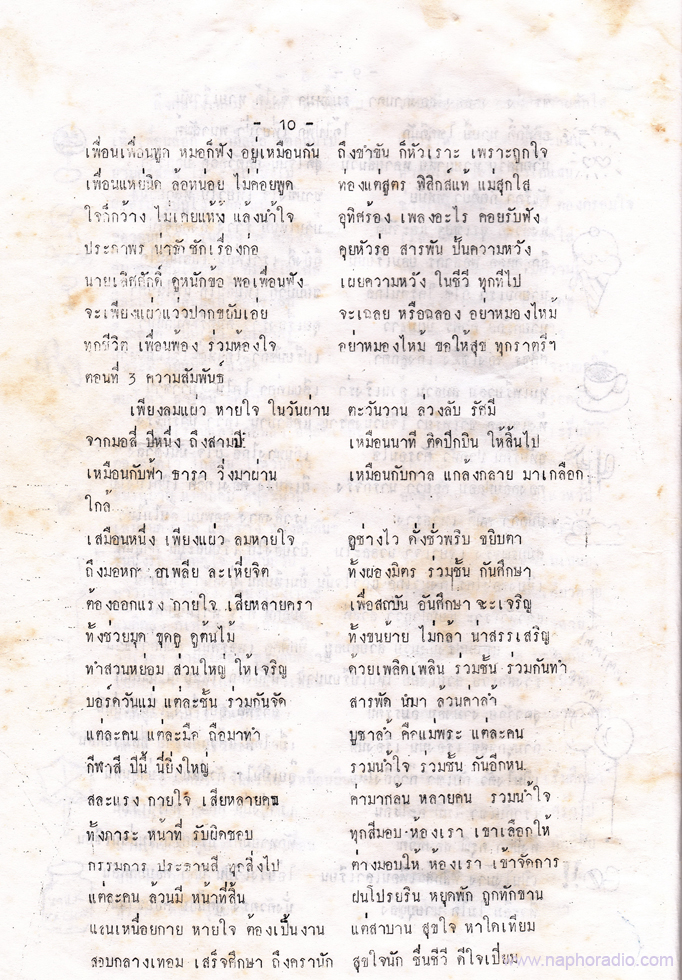 - 10 -
เพื่อนเพื่อนพูด หมอก็ฟัง อยู่เหมือนกัน ถึงขำขัน ก็หัวเราะ เพราะถูกใจ
เพื่อนแหย่นิด ล้อหน่อย ไม่ค่อยพูด ท่องแต่สูตร ฟิสิกส์แท้ แม่สุกใส
ใจก็กว้าง ไม่เคยแห้ง แล้งน้ำใจ อุทิศร้อง เพลงอะไร คอยรับฟัง
ประภาพร น่ารัก ชักเรื่องก่อ คุยหัวร่อ สารพัน ปั้นความหวัง
นายเลิศศักดิ์ คูหนักข้อ พอเพื่อนฟัง เผยความหวัง ในชีวี ทุกทีไป
จะเพียงแผ่วแว่วปากขยับเอ่ย จะเฉลย หรือฉลอง อย่าหมองไหม้
ทุกชีวิต เพื่อนพ้อง ร่วมห้องใจ อย่าหมองไหม้ ขอให้สุข ทุกราตรีฯ
ตอนที่ 3 ความสัมพันธ์
เพียงลมแผ่ว หายใจ ในวันผ่าน ตะวันวาน ล่วงลับ รัศมี
จากมอสี่ ปีหนึ่ง ถึงสามปี เหมือนนาที ติดปีกบิน ให้สิ้นไป
เหมือนกับฟ้า ธารา วิ่งมาผ่าน เหมือนกับกาล แกล้งกลาย มาเกลือก
ใกล้
เสมือนหนึ่ง เพียงแผ่ว ลมหายใจ ดูช่างไว ดั่งชั่วพริบ ขยิบตา
ถึงมอหก อ่อนเพลีย ละเหี่ยจิต ทั้งผองมิตร ร่วมชั้น กันศึกษา
ต้องออกแรง กายใจ เสียหลายครา เพื่อสถาบัน อันศึกษา จะเจริญ
ทั้งช่วยมุด ขุดคู ดูต้นไม้ ทั้งขนย้าย ไม่กล้า น่าสรรเสริญ
ทำสวนหย่อม ส่วนใหญ่ ให้เจริญ ด้วยเพลิดเพลิน ร่วมชั้น ร่วมกันทำ
บอร์ดวันแม่ แต่ละชั้น ร่วมกันจัด สารพัด นำมา ล้วนค่าล้ำ
แต่ละคน แต่ละมือ ถือมาทำ บูชาล้ำ คือแม่พระ แต่ละคน
กีฬาสี ปีนี้ นี่ยิ่งใหญ่ รวมน้ำใจ รวมชั้น กันอีกหน
สละแรง กายใจ เสียหลายคน ค่ามากล้น หลายคน รวมน้ำใจ
ทั้งภาระ หน้าที่ รับผิดชอบ ทุกสีมอบ ห้องเรา เขาเลือกให้
กรรมการ ประธานสี ทุกสิ่งไป ต่างมอบให้ ห้องเรา เข้าจัดการ
แต่ละคน ล้วนมี หน้าที่สิ้น ฝนโปรยริน หยุดพัก ถูกทักขาน
แสนเหนื่อยกาย หายใจ ต้องเป็นงาน แต่สาบาน สุขใจ หาใดเทียม
สอบกลางเทอม เสร็จศึกษา ถึงครานัก สุขใจนัก ชื่นชีวี ดีใจเปี่ยม
www.naphoradio.com